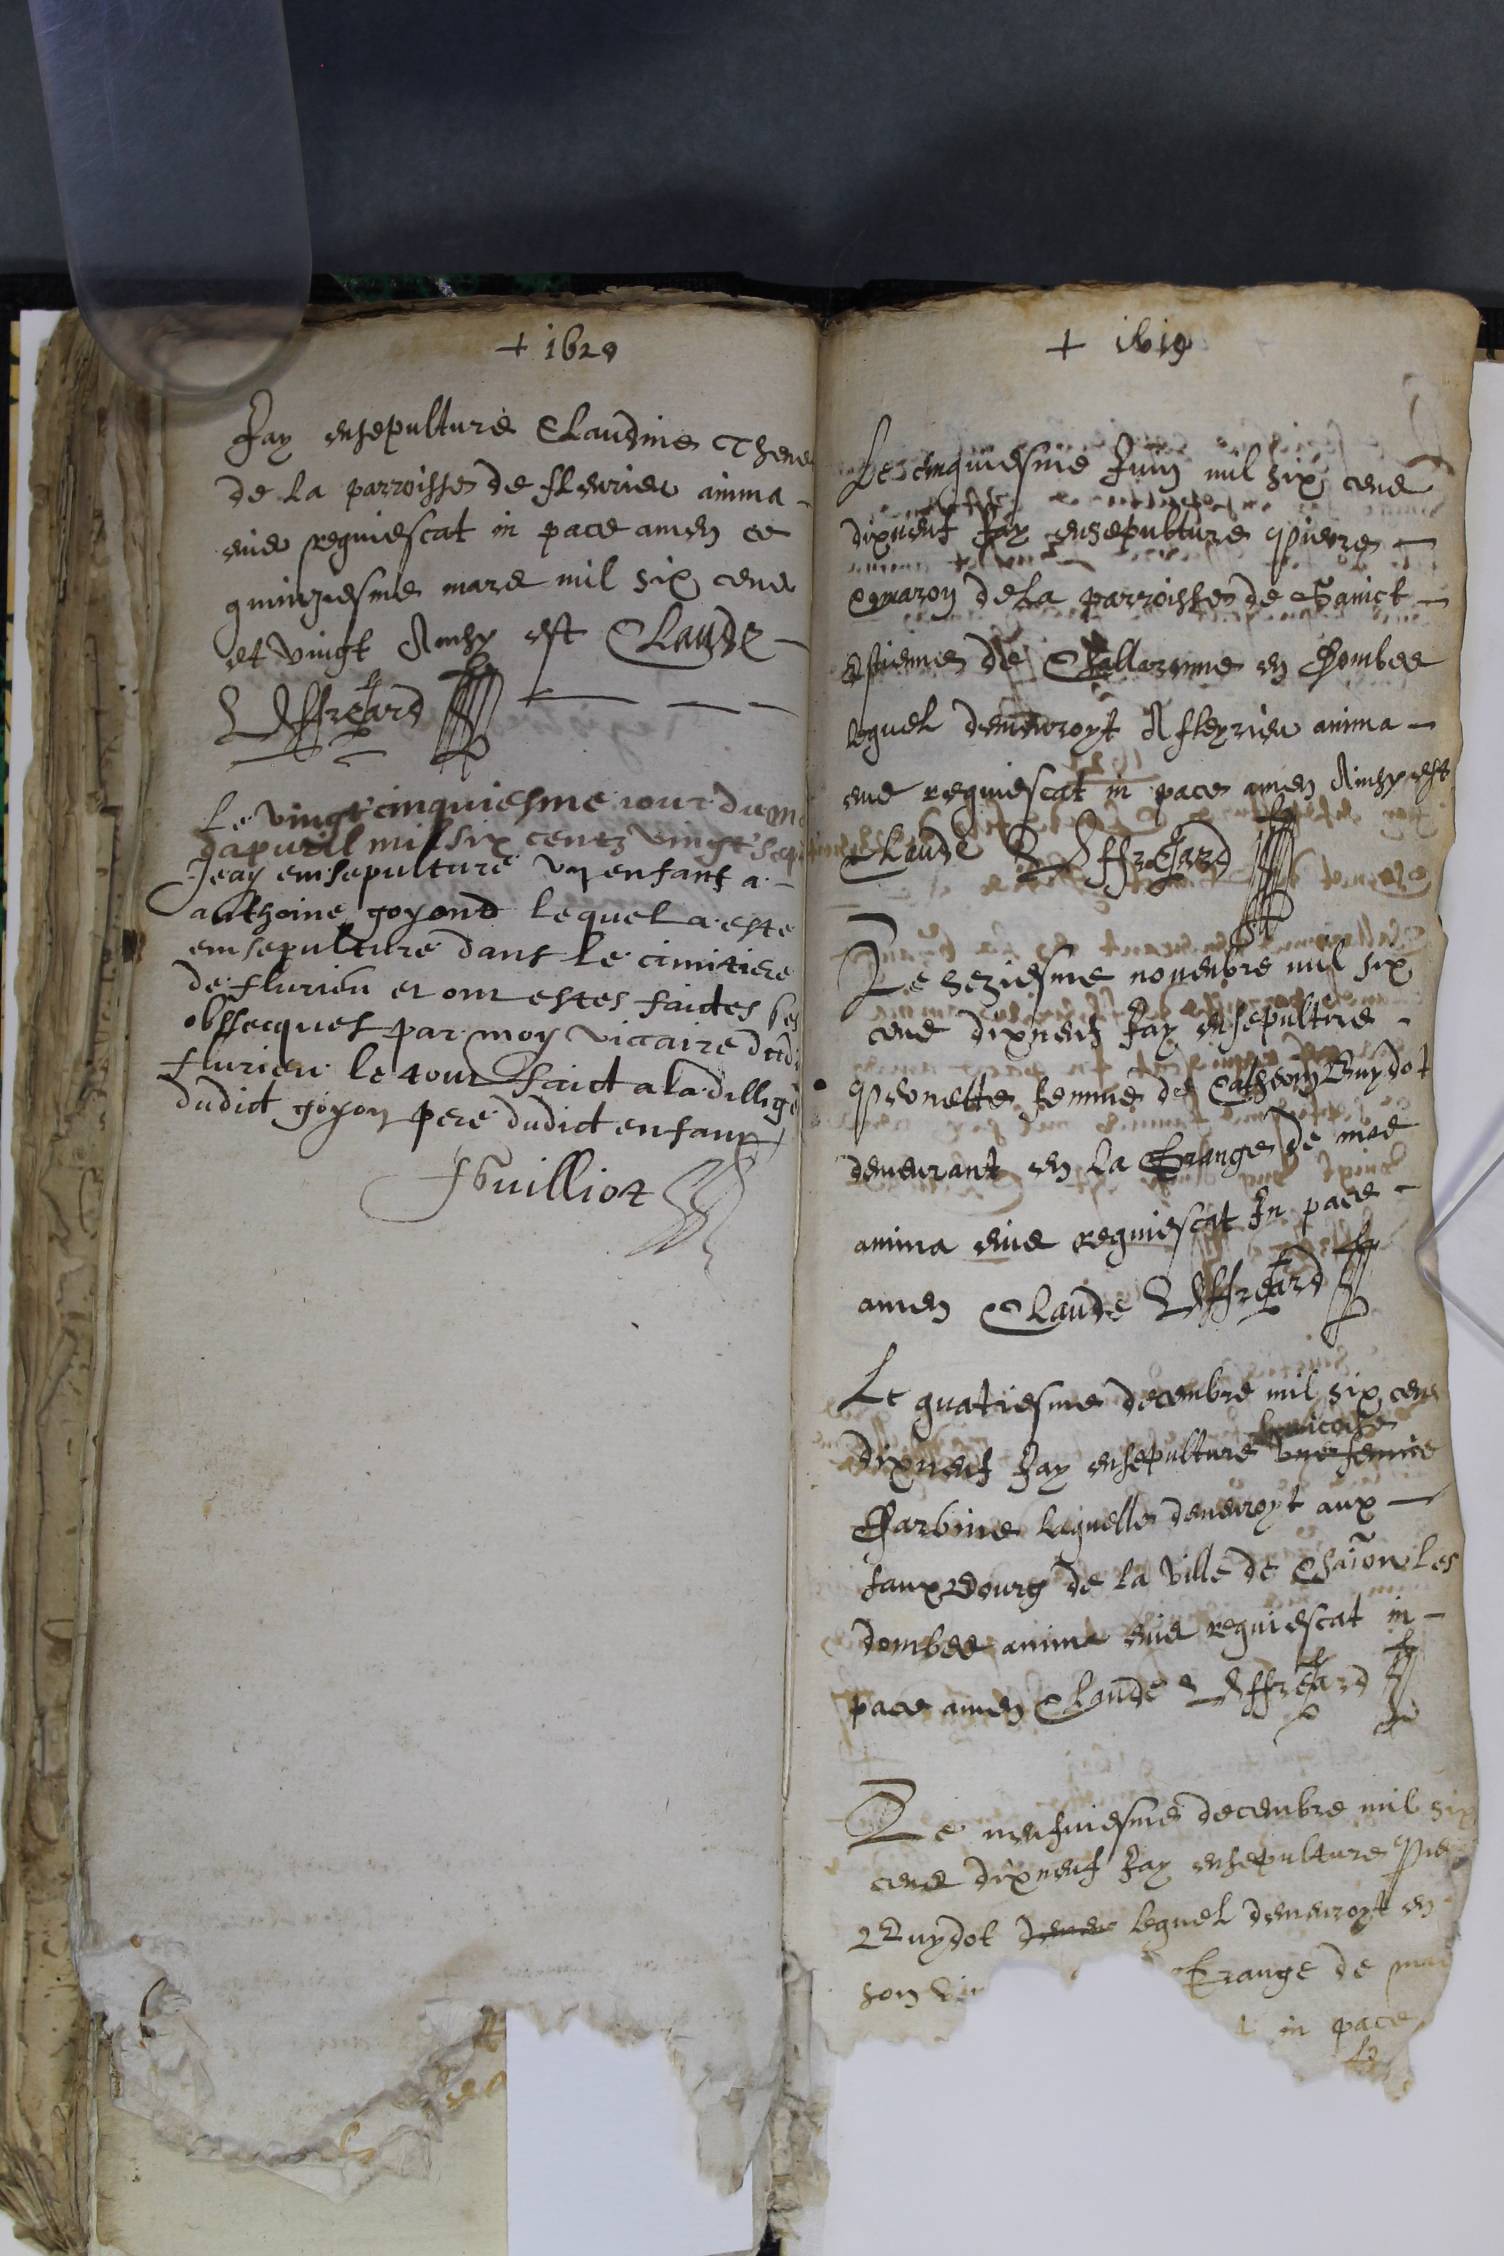 + 1620
Jay ensepulture Claudine Theve
de la parroisse de fleurieu anima
eius requiescat in pace amen ce
quinziesme mars mil six cens
et vingt Ainsy est Claude
Effreard
Le vingt cinquiesme iour du mo
dapuril mil six centz vingt sept
Jeay ensepulturé un enfant a
anthoine goyond lequel a esté
ensepulturé dans le cimitiere
de flurieu et ont estes faictes ses
obsecques par moy viccaire dud
flurieu le tout faict a la dillige
dudict goyon pere dudict enfant
Guilliot
+ 1619
Le cinquiesme Juin mil six cens
dixneuf Jay ensepulture pierre
de la parroisse de Sainct
Estienne de Challaronne en Dombes
lequel demeuroyt A fleyrieu anima
eius requiescat in pace amen Ainsy est
Claude Effreard
Le seziesme novembre mil six
cens dixneuf Jay ensepulture
pernette femme de Guydot
demeurant en la Grange de mos
anima eius requiescat In pace
amen Claude Effreard
Le quatriesme decembre mil six cens
dixneuf Jay ensepulture une femme
Barbine laquelle demeuroyt aux
faux Bourg de la Ville de Cha~on les
dombes anima eius requiescat in
pace amen Claude Effreard
Le neufviesme decembre mil six
cens dixneuf Jay ensepulture Pie
Guydot lequel demeuroyt en
son Grange de ma
in pace